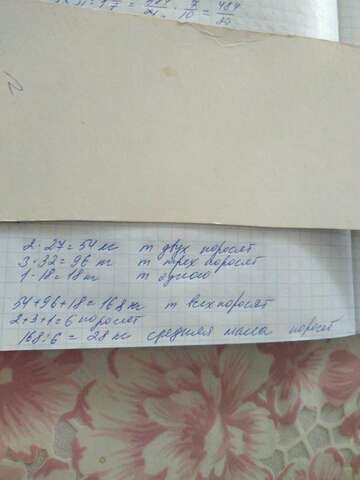 = 484/10
2·27=54 кг m двух поросят
3·32=96 кг m трех поросят
1·18=18 кг m одного
54+96+18=168 кг m всех поросят
2+3+1=6 поросят
168:6= 28 кг средняя масса поросят